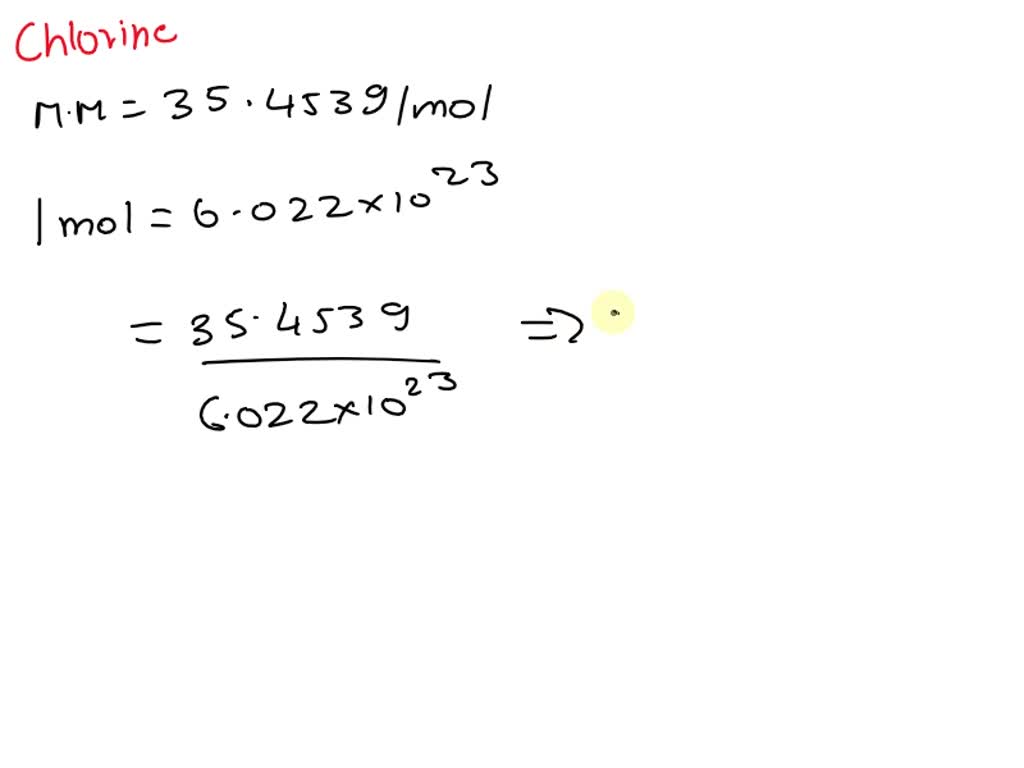 Chlorine
M.M = 35.453g/mol
1 mol = 6.022×10²³
= 35.453g / 6.022×10²³ ⇒